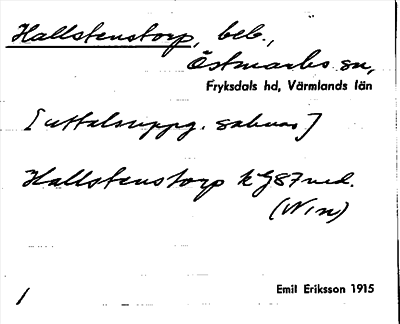 Hallstenstorp, beb.,
Östmarks sn,
Fryksdals hd, Värmlands län
[uttalsuppg. saknas]
Hallstenstorp kGJ87ned.
(Nin)
Emil Eriksson 1915
1